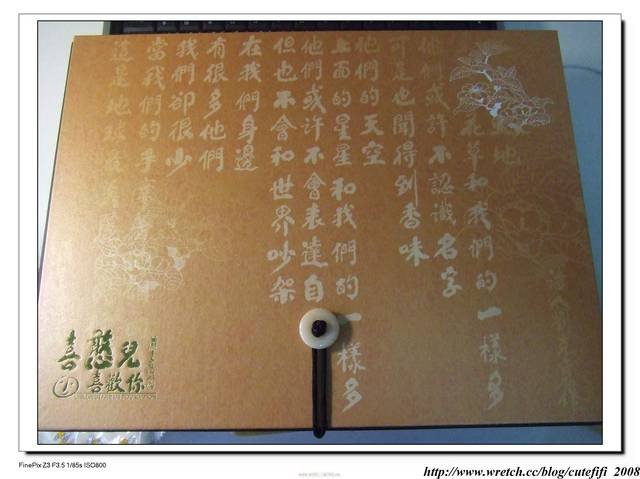 地
花草和我們的一樣多
他們或許不認識名字
可是也聞得到香味
他們的天空
上面的星星和我們的一樣多
他們或許不會表達自
但也不會和世界吵架
在我們身邊
有很多他們
我們卻很少
當我們的手
這是地球
喜憨兒
喜歡你
FinePix Z3 F3.5 1/85s ISO800
http://www.wretch.cc/blog/cutefifi 2008